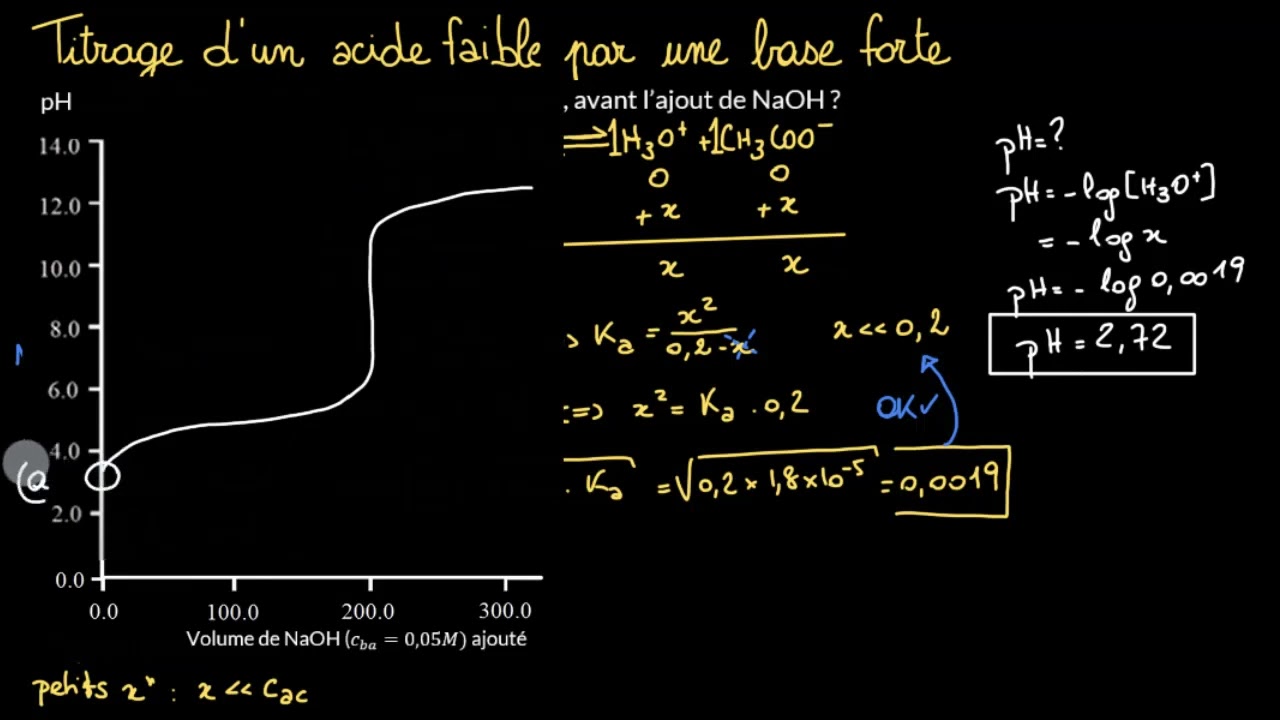 Titrage d'un acide faible par une base forte
pH
14.0
12.0
10.0
8.0
6.0
4.0
2.0
0.0
0.0 100.0 200.0 300.0
Volume de NaOH (c_ba = 0,05M) ajouté
(a
petits x" : x << C_ac
, avant l'ajout de NaOH ?
⇌ 1H₃O⁺ + 1CH₃COO⁻
0 0
+x +x
x x
Ka = x² / 0,2 - x
x << 0,2
<=> x² = Ka . 0,2
OK✓
. Ka = √0,2 × 1,8×10⁻⁵ = 0,0019
pH = ?
pH = - log [H₃O⁺]
= - log x
pH = - log 0,0019
pH = 2,72